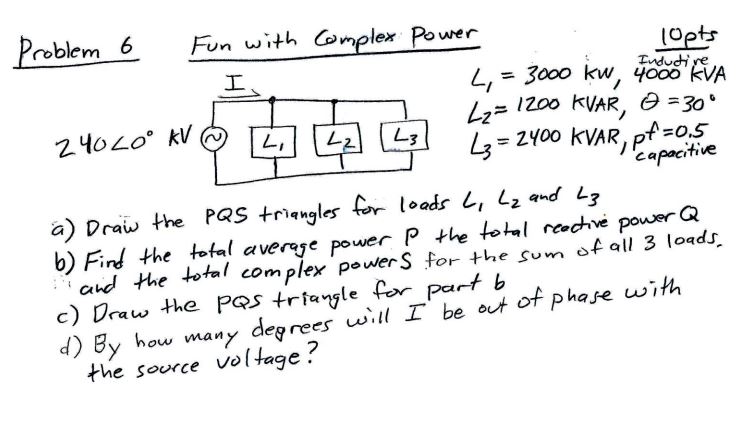 Problem 6 Fun with Complex Power 10pts
L₁ = 3000 kW, 4000 Inductive KVA
I
L₂ = 1200 KVAR, θ = 30°
240∠0° kV ~ L₁ L₂ L₃
L₃ = 2400 KVAR, pf = 0.5
capacitive
a) Draw the PQS triangles for loads L₁ L₂ and L₃
b) Find the total average power P the total reactive power Q
and the total complex power S for the sum of all 3 loads.
c) Draw the PQS triangle for part b
d) By how many degrees will I be out of phase with
the source voltage?